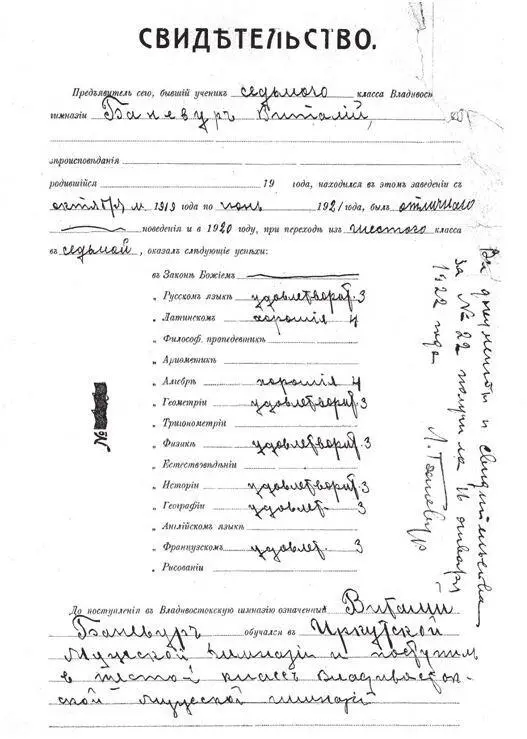 СВИДѢТЕЛЬСТВО.
Предъявитель сего, бывшій ученикъ седьмого класса Владивост
гимназіи Баневуръ Виталій,
вѣроисповѣданія
родившійся 19 года, находился въ этомъ заведеніи съ
октября м 1919 года по іюнь 1921 года, былъ отличнаго
поведенія и въ 1920 году, при переходѣ изъ шестого класса
въ седьмой, оказалъ слѣдующіе успѣхи:
въ Законѣ Божіемъ
„ Русскомъ языкѣ удовлетворит. 3
„ Латинскомъ хорошія 4
„ Философ. пропедевтикѣ
„ Ариѳметикѣ
„ Алгебрѣ хорошія 4
„ Геометріи удовлетворит 3
„ Тригонометріи
„ Физикѣ удовлетворит 3
„ Естествовѣдѣніи
„ Исторіи удовлетворит 3
„ Географіи удовлет. 3
„ Англійскомъ языкѣ
„ Французскомъ удовлет. 3
„ Рисованіи
№
До поступленія въ Владивостокскую гимназію означенный Виталій
Баневуръ обучался въ Иркутской
Мужской гимназіи и поступил
в шестой классъ Владивосток-
ской мужской гимназіи
Все документы и свидетельства
за № 22 получила 16 января
1922 года
Л. Баневур